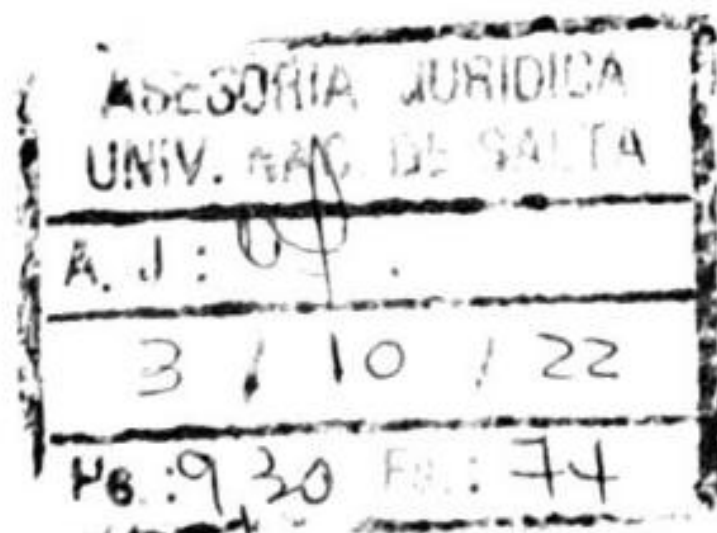 ASESORIA JURIDICA
UNIV. NAC. DE SALTA
A. J :
3 / 10 / 22
Hs.: 9,30 Fs.: 74